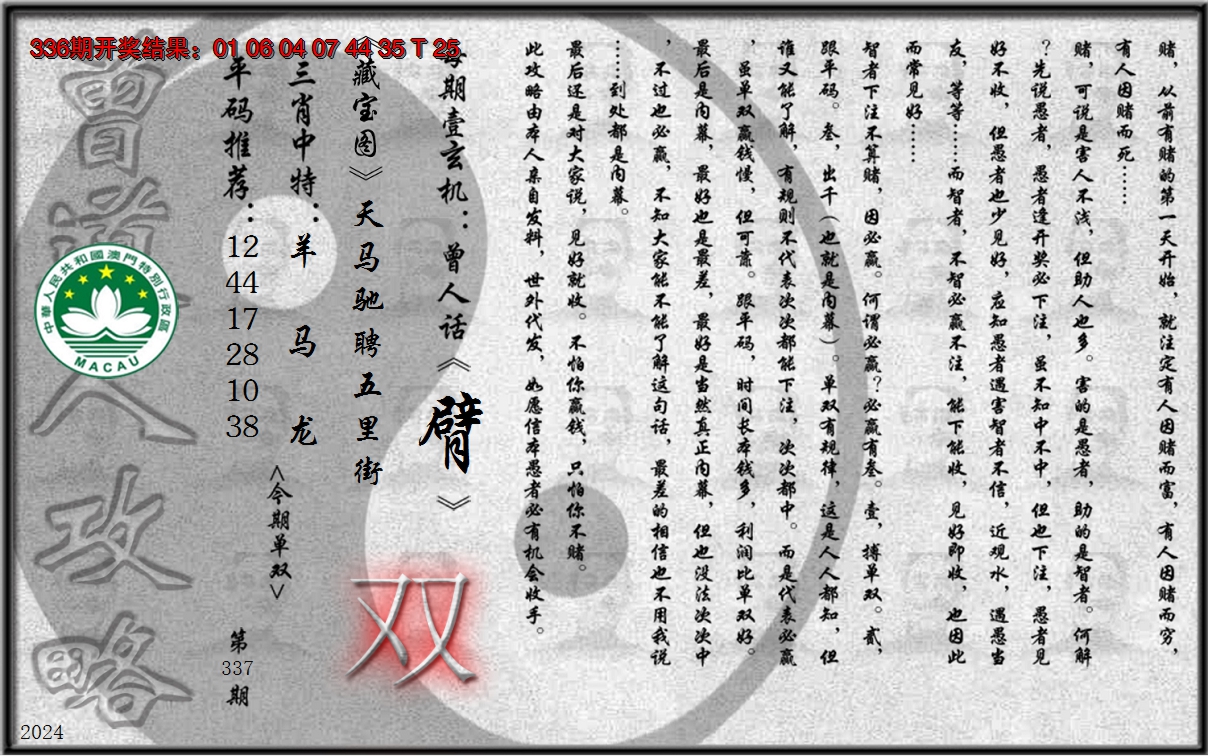 336期开奖结果：01 06 04 07 44 35 T 25
赌，从前有赌的第一天开始，就注定有人因赌而富，有人因赌而穷，
有人因赌而死……
赌，可说是害人不浅，但助人也多。害的是愚者，助的是智者。何解
？先说愚者，愚者逢开奖必下注，虽不知中不中，但也下注，愚者见
好不收，但愚者也少见好，应知愚者遇害智者不信，近观水，遇愚当
友，等等……而智者，不智必赢不注，能下能收，见好即收，也因此
而常见好……
智者下注不算赌，因必赢。何谓必赢？必赢有叁。壹，搏单双。贰，
跟平码。叁，出千（也就是内幕）。单双有规律，这是人人都知，但
谁又能了解，有规则不代表次次都能下注，次次都中。而是代表必赢
，虽单双赢钱慢，但可靠。跟平码，时间长本钱多，利润比单双好。
最后是内幕，最好也是最差，最好是当然真正内幕，但也没法次次中
，不过也必赢，不知大家能不能了解这句话，最差的相信也不用我说
……到处都是内幕。
最后还是对大家说，见好就收。不怕你赢钱，只怕你不赌。
此攻略由本人亲自发料，世外代发，如愿信本愚者必有机会收手。
每期壹玄机：曾人话《臂》
《藏宝图》天马驰聘五里街
双
三肖中特：羊 马 龙
<今期单双>
平码推荐：12 44 17 28 10 38
第337期
曾道人攻略
中華人民共和國澳門特別行政區
MACAU
2024